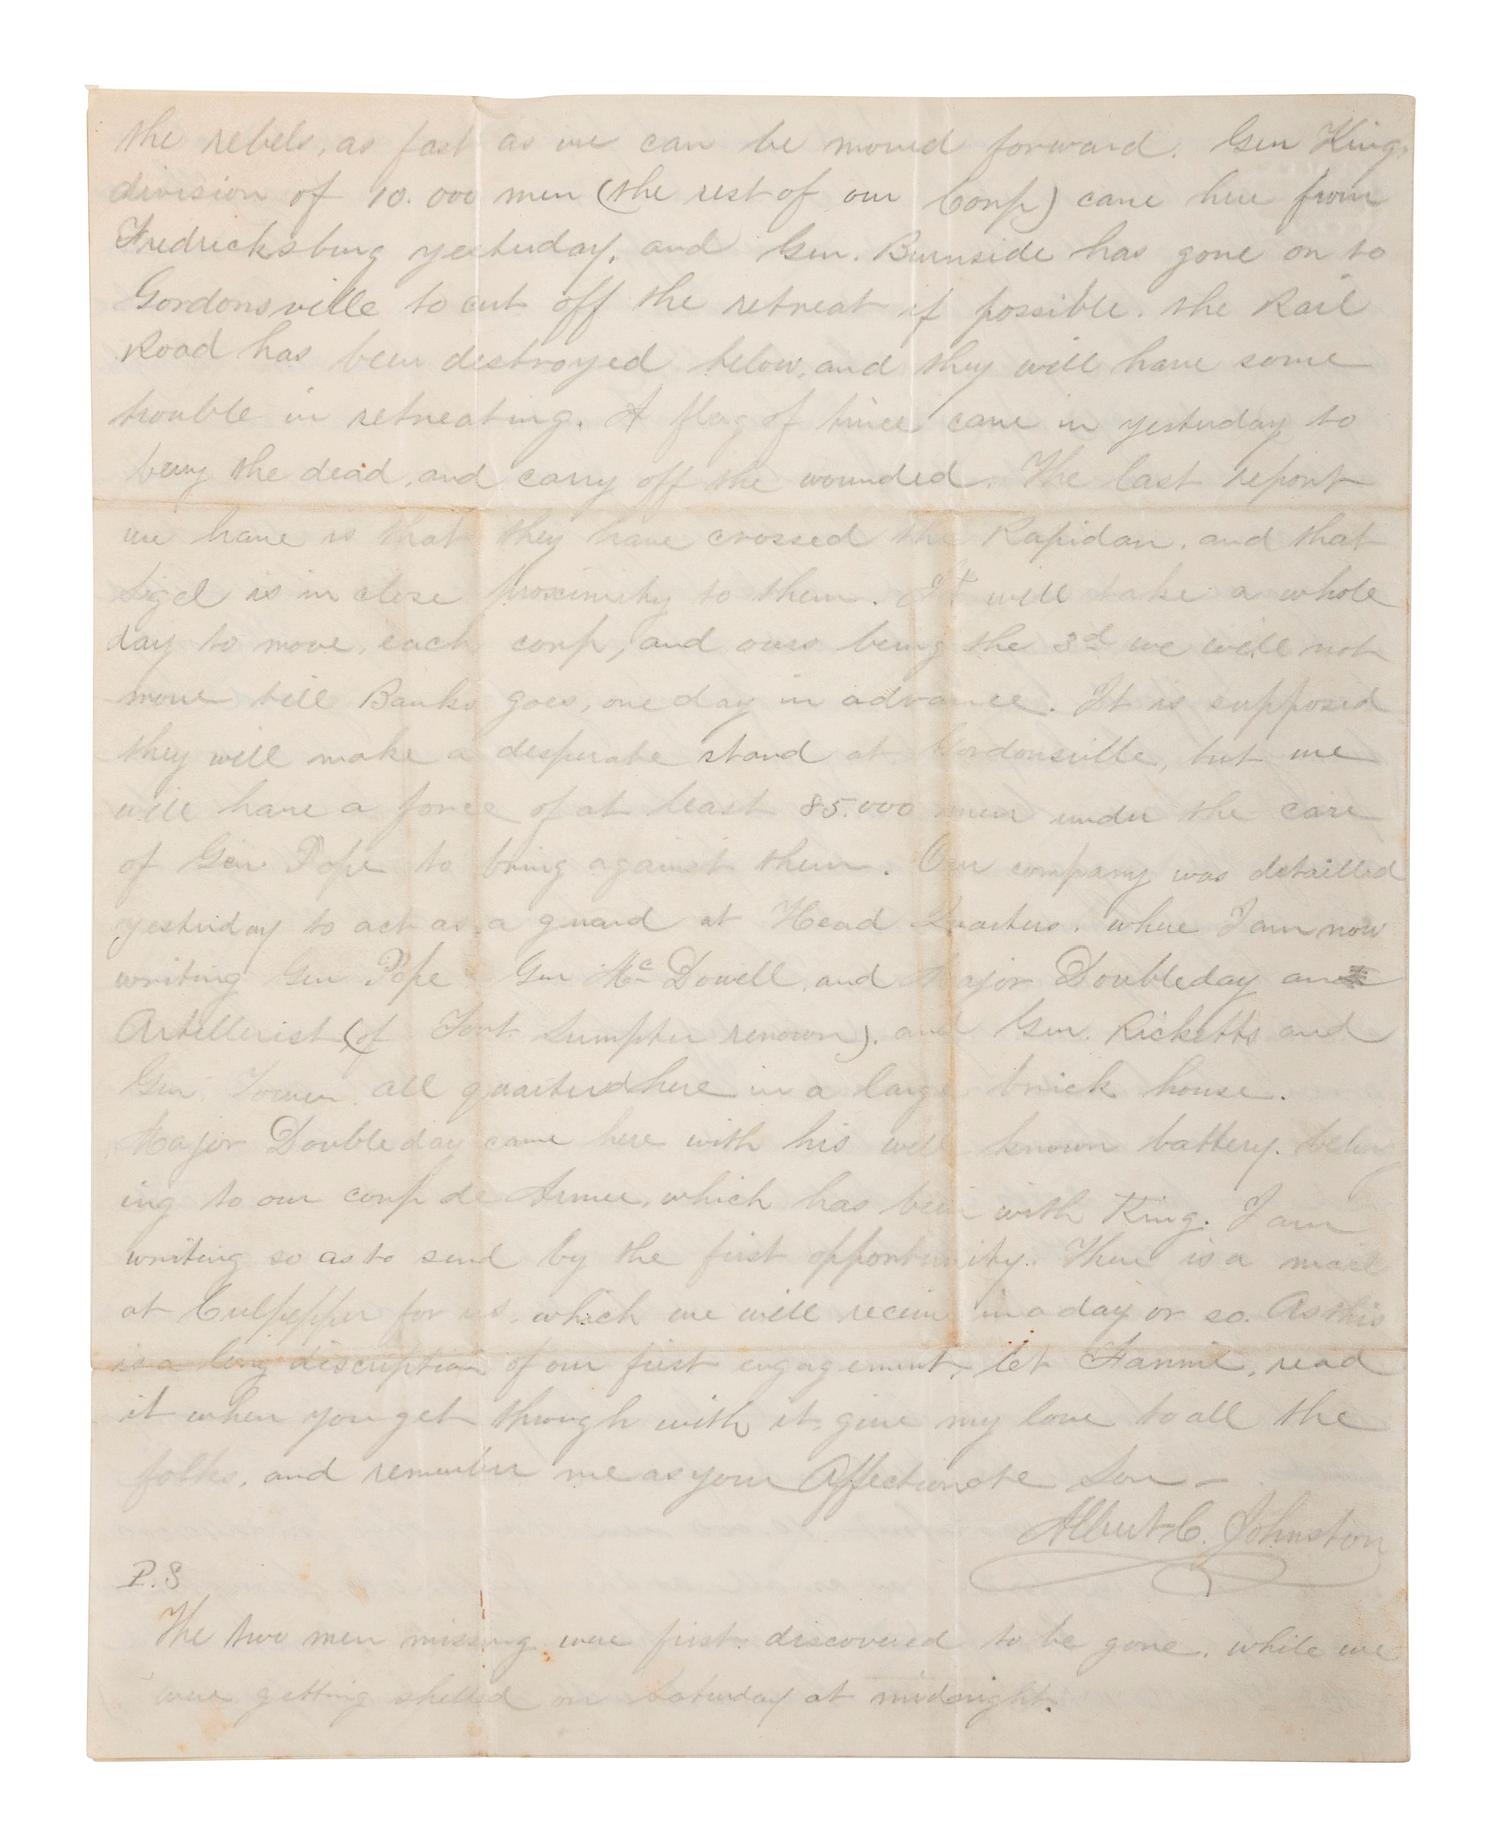 the rebels, as fast as we can be moved forward. Gen Kings
division of 10.000 men (the rest of our Corp) came here from
Fredricksburg yesterday, and Gen. Burnside has gone on to
Gordonsville to cut off the retreat if possible. the Rail
Road has been destroyed below, and they will have some
trouble in retreating. A flag of truce came in yesterday to
bury the dead, and carry off the wounded. The last report
we have is that they have crossed the Rapidan, and that
Sigel is in close proximity to them. It will take a whole
day to move, each corp, and ours being the 3d we will not
move till Banks goes, one day in advance. It is supposed
they will make a desperate stand at Gordonsville, but we
will have a force of at least 85.000 men under the care
of Gen Pope to bring against them. Our company was detailled
yesterday to act as a guard at Head Quarters. where I am now
writing Gen Pope Gen McDowell, and Major Doubleday an
Artillerist (of Fort Sumpter renown), and Gen. Ricketts and
Gen. Tower all quartered here in a large brick house.
Major Doubleday came here with his well known battery. belong
ing to our corp de Armee, which has been with King. I am
writing so as to send by the first opportunity. There is a mail
at Culpepper for us, which we will receive in a day or so. As this
is a long discription of our first engagement, let Fannie, read
it when you get through with it, give my love to all the
folks, and remember me as your Affectionate Son -
Albert C. Johnston
P.S
The two men missing were first discovered to be gone, while we
were getting shelled on Saturday at midnight.